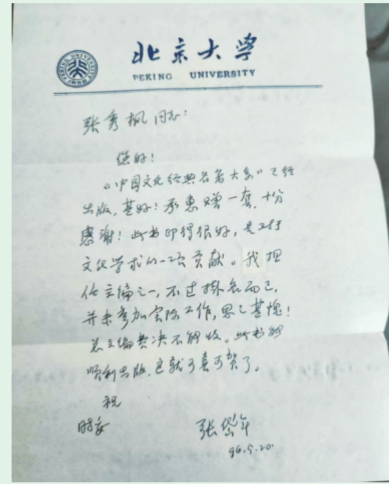 北京大学
PEKING UNIVERSITY
张秀枫同志：
您好！
《中国文化经典名著大系》已经
出版，甚好！承惠赠一套，十分
感谢！此书印得很好，是对于
文化学术的一项贡献。我担
任主编之一，不过挂名而已，
并未参加实际工作，思之甚愧！
主编费决不能收。此书能
顺利出版，这就可喜可贺了。
祝
时安
张岱年
96.5.20.